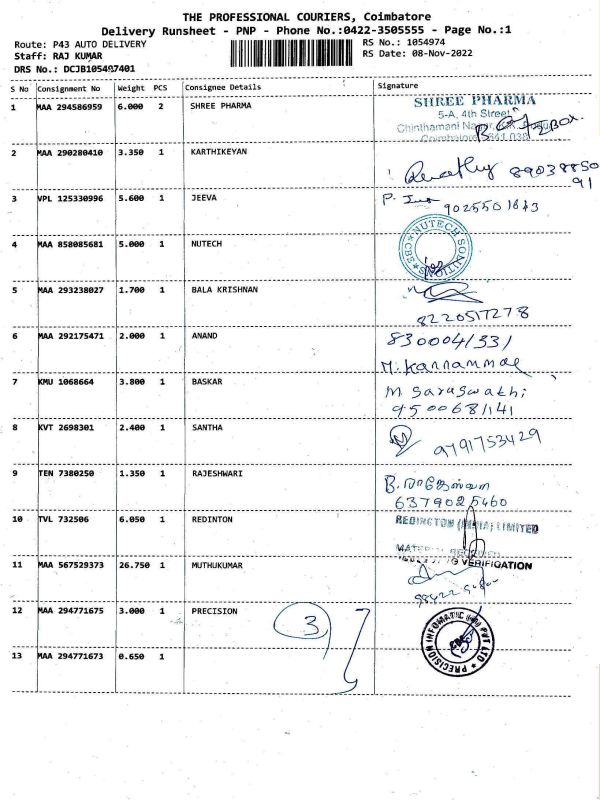 THE PROFESSIONAL COURIERS, Coimbatore
Delivery Runsheet - PNP - Phone No.:0422-3505555 - Page No.:1
Route: P43 AUTO DELIVERY
RS No.: 1054974
Staff: RAJ KUMAR
RS Date: 08-Nov-2022
DRS No.: DCJB105497401
S No Consignment No Weight PCS Consignee Details Signature
1 MAA 294586959 6.000 2 SHREE PHARMA
SHREE PHARMA
5-A, 4th Street
Chinthamani Nagar,
Coimbatore-641 038
BOX
2 MAA 290280410 3.350 1 KARTHIKEYAN
8903885091
3 VPL 125330996 5.600 1 JEEVA
9025501643
4 MAA 858085681 5.000 1 NUTECH
NUTECH
5 MAA 293238027 1.700 1 BALA KRISHNAN
8220517278
6 MAA 292175471 2.000 1 ANAND
8300041331
M. Kannammal
7 KMU 1068664 3.800 1 BASKAR
M Saraswathi
9500681141
8 KVT 2698301 2.400 1 SANTHA
9791753429
9 TEN 7380250 1.350 1 RAJESHWARI
6379025460
10 TVL 732506 6.050 1 REDINTON
REDINGTON (INDIA) LIMITED
MATERIAL RECEIVED
VERIFICATION
11 MAA 567529373 26.750 1 MUTHUKUMAR
12 MAA 294771675 3.000 1 PRECISION
3
PRECISION INFOMATIC (M) PVT LTD
CBE
13 MAA 294771673 0.650 1